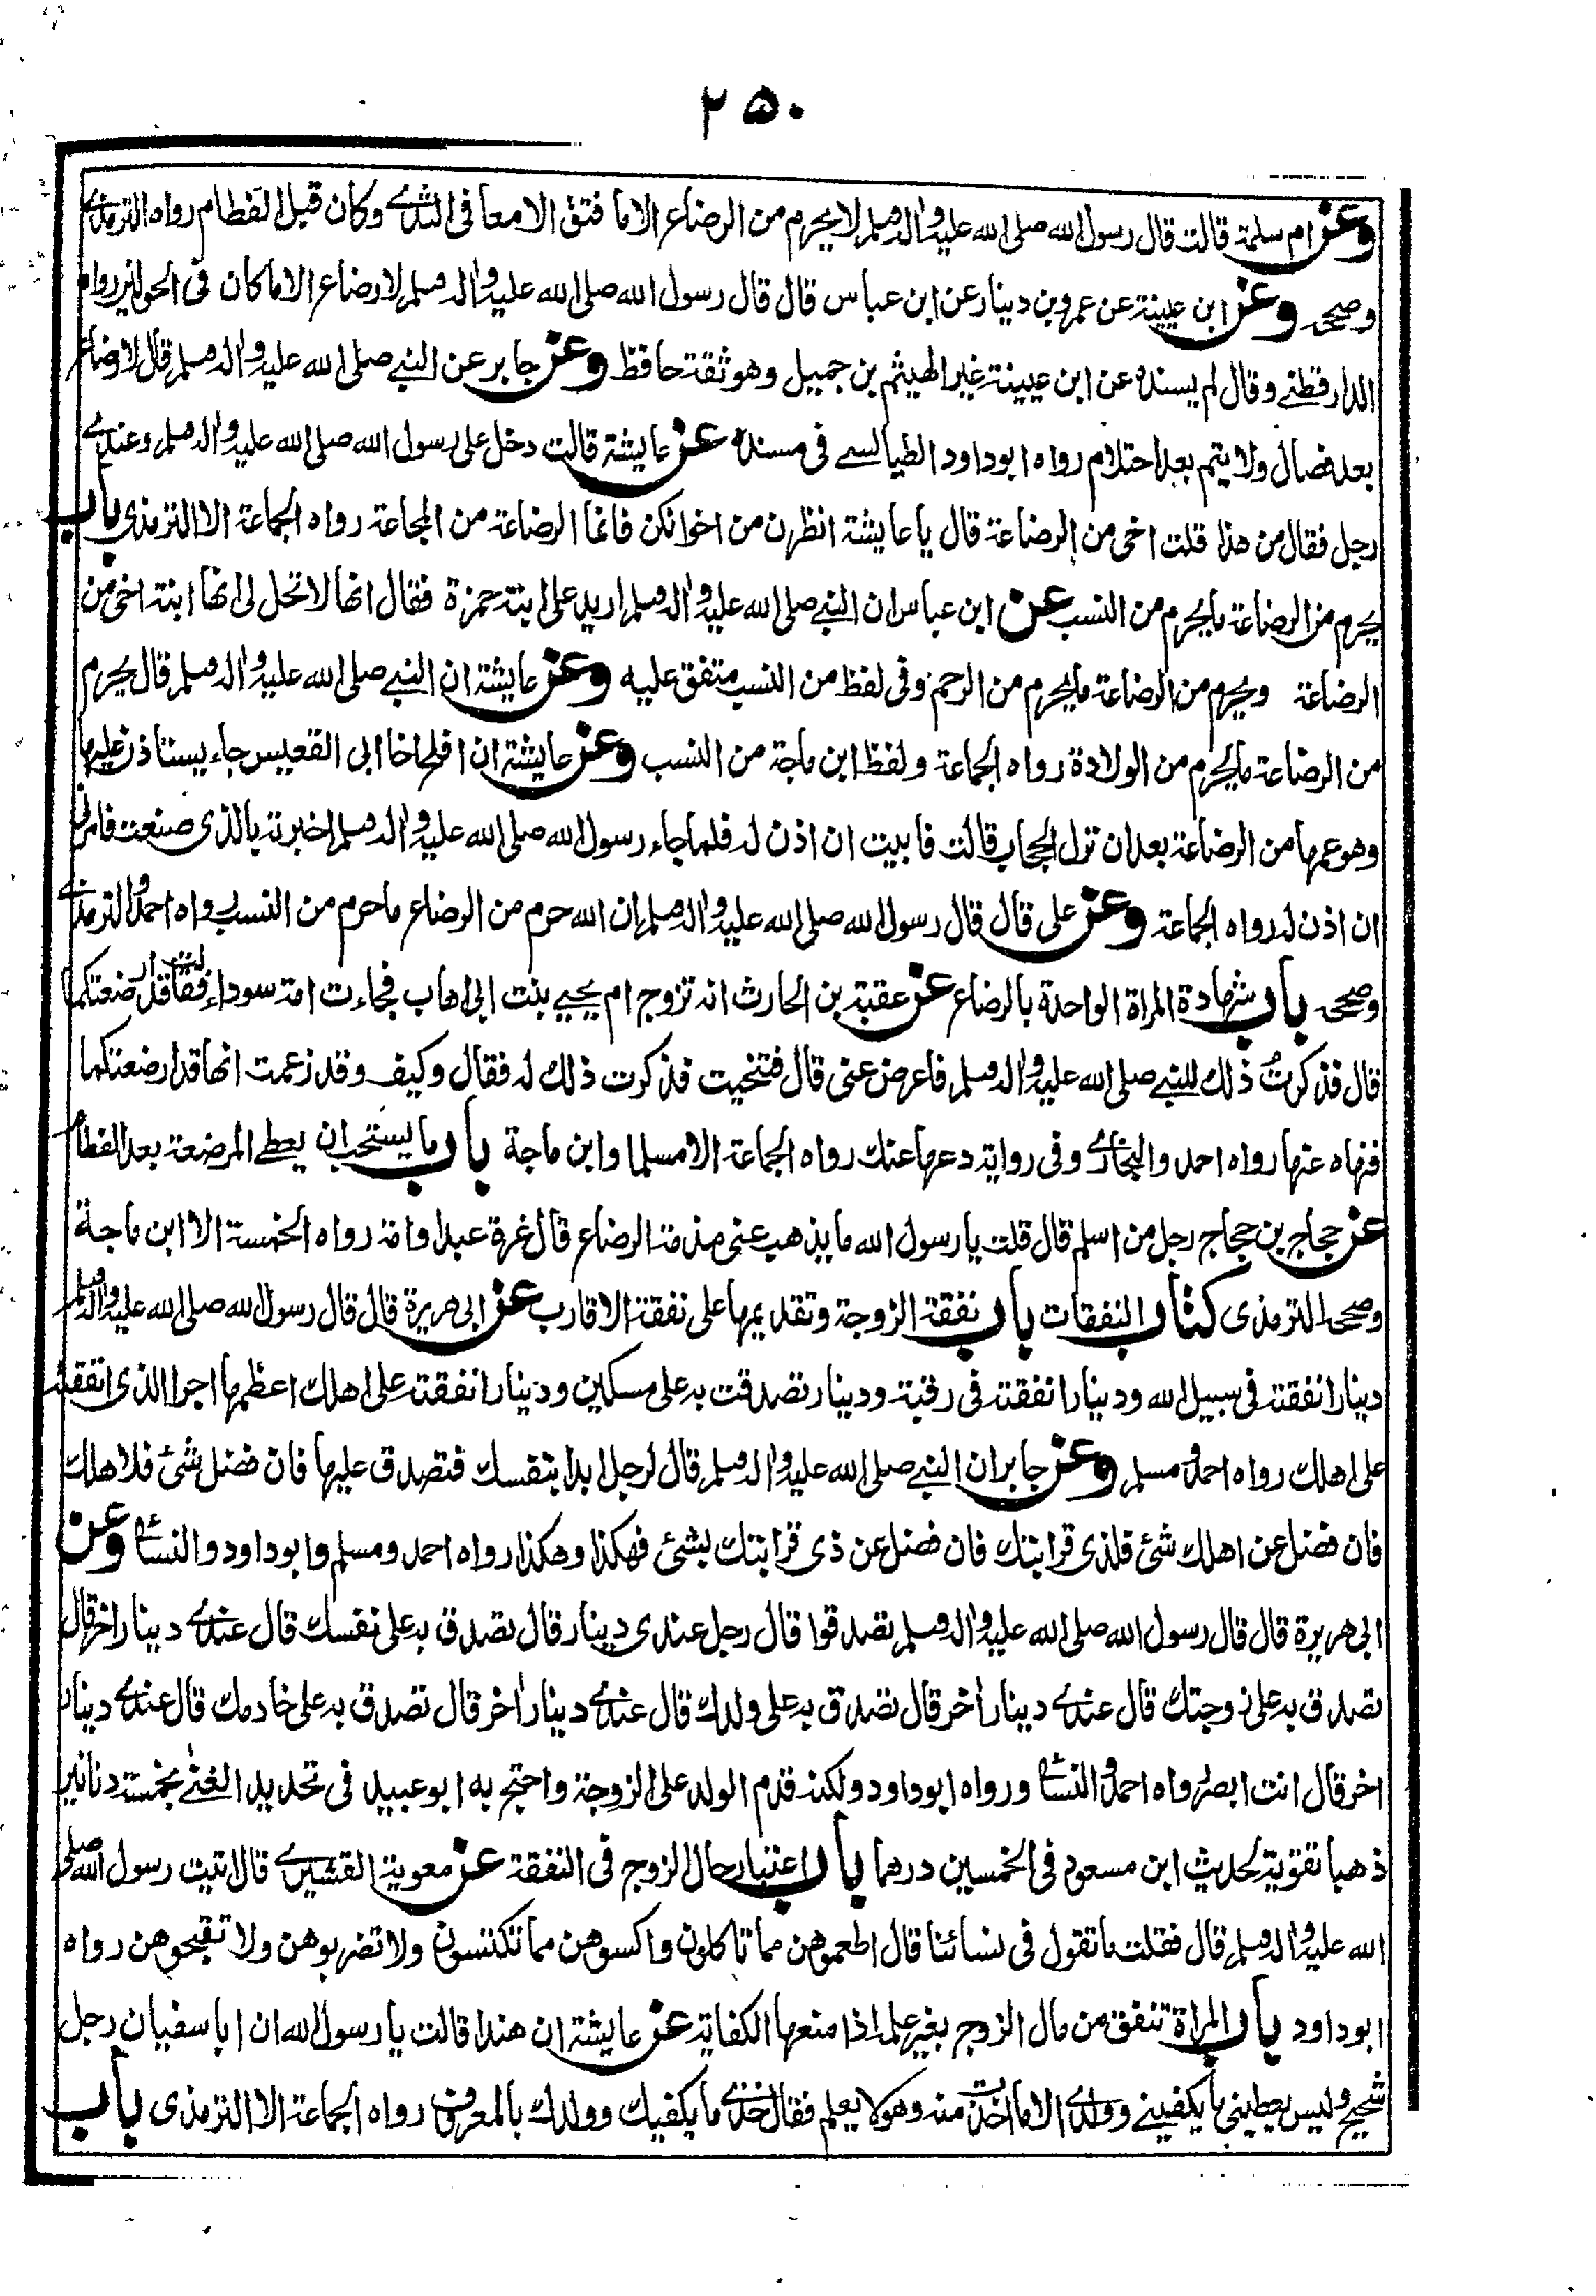 ۲۵۰
وعن ام سلمة قالت قال رسول الله صلى الله عليه واله وسلم لا يحرم من الرضاع الا ما فتق الامعا فى الثدى وكان قبل الفطام رواه الترمذى
وصححه وعن ابن عيينة عن عمرو بن دينار عن ابن عباس قال قال رسول الله صلى الله عليه واله وسلم لا رضاع الا ما كان فى الحولين رواه
الدارقطنى وقال لم يسنده عن ابن عيينة غير الهيثم بن جميل وهو ثقة حافظ وعن جابر عن النبى صلى الله عليه واله وسلم قال لا رضاع
بعد فصال ولا يتم بعد احتلام رواه ابو داود الطيالسى فى مسنده عن عايشة قالت دخل على رسول الله صلى الله عليه واله وسلم وعندى
رجل فقال من هذا قلت اخى من الرضاعة قال يا عايشة انظرن من اخوانكن فانما الرضاعة من المجاعة رواه الجماعة الا الترمذى باب
يحرم من الرضاعة ما يحرم من النسب عن ابن عباس ان النبى صلى الله عليه واله وسلم اريد على ابنة حمزة فقال انها لا تحل لى انها ابنة اخى من
الرضاعة ويحرم من الرضاعة ما يحرم من الرحم وفى لفظ من النسب متفق عليه وعن عايشة ان النبى صلى الله عليه واله وسلم قال يحرم
من الرضاعة ما يحرم من الولادة رواه الجماعة ولفظ ابن ماجة من النسب وعن عايشة ان افلح اخا ابى القعيس جاء يستاذن عليها
وهو عمها من الرضاعة بعد ان نزل الحجاب قالت فابيت ان اذن له فلما جاء رسول الله صلى الله عليه واله وسلم اخبرته بالذى صنعت فامرنى
ان اذن له رواه الجماعة وعن على قال قال رسول الله صلى الله عليه واله وسلم ان الله حرم من الرضاع ما حرم من النسب رواه احمد والترمذى
وصححه باب شهادة المراة الواحدة بالرضاع عن عقبة بن الحارث انه تزوج ام يحيى بنت ابى اهاب فجاءت امة سوداء فقالت قد ارضعتكما
قال فذكرتُ ذلك للنبى صلى الله عليه واله وسلم فاعرض عنى قال فتنحيت فذكرت ذلك له فقال وكيف وقد زعمت انها قد ارضعتكما
فنهاه عنها رواه احمد والبخارى وفى رواية دعها عنك رواه الجماعة الا مسلما وابن ماجة باب ما يستحب ان يعطى المرضعة بعد الفطام
عن حجاج بن حجاج رجل من اسلم قال قلت يا رسول الله ما يذهب عنى مذمة الرضاع قال غرة عبد او امة رواه الخمسة الا ابن ماجة
وصححه الترمذى كتاب النفقات باب نفقة الزوجة وتقديمها على نفقة الاقارب عن ابى هريرة قال قال رسول الله صلى الله عليه واله وسلم
دينار انفقته فى سبيل الله ودينار انفقته فى رقبة ودينار تصدقت به على مسكين ودينار انفقته على اهلك اعظمها اجرا الذى انفقته
على اهلك رواه احمد ومسلم وعن جابر ان النبى صلى الله عليه واله وسلم قال لرجل ابدا بنفسك فتصدق عليها فان فضل شئ فلاهلك
فان فضل عن اهلك شئ فلذى قرابتك فان فضل عن ذى قرابتك بشئ فهكذا وهكذا رواه احمد ومسلم وابو داود والنسائى وعن
ابى هريرة قال قال رسول الله صلى الله عليه واله وسلم تصدقوا قال رجل عندى دينار قال تصدق به على نفسك قال عندى دينار اخر قال
تصدق به على زوجتك قال عندى دينار اخر قال تصدق به على ولدك قال عندى دينار اخر قال تصدق به على خادمك قال عندى دينار
اخر قال انت ابصر رواه احمد والنسائى ورواه ابو داود ولكنه قدم الولد على الزوجة واحتج به ابو عبيد فى تحديد الغنى بخمسة دنانير
ذهبا تقوية لحديث ابن مسعود فى الخمسين درهما باب اعتبار حال الزوج فى النفقة عن معوية القشيرى قال اتيت رسول الله صلى
الله عليه واله وسلم قال فقلت ما تقول فى نسائنا قال اطعموهن مما تاكلون واكسوهن مما تكتسون ولا تضربوهن ولا تقبحوهن رواه
ابو داود باب المراة تنفق من مال الزوج بغير علمه اذا منعها الكفاية عن عايشة ان هندا قالت يا رسول الله ان ابا سفيان رجل
شحيح وليس يعطينى ما يكفينى وولدى الا ما اخذت منه وهو لا يعلم فقال خذى ما يكفيك وولدك بالمعروف رواه الجماعة الا الترمذى باب